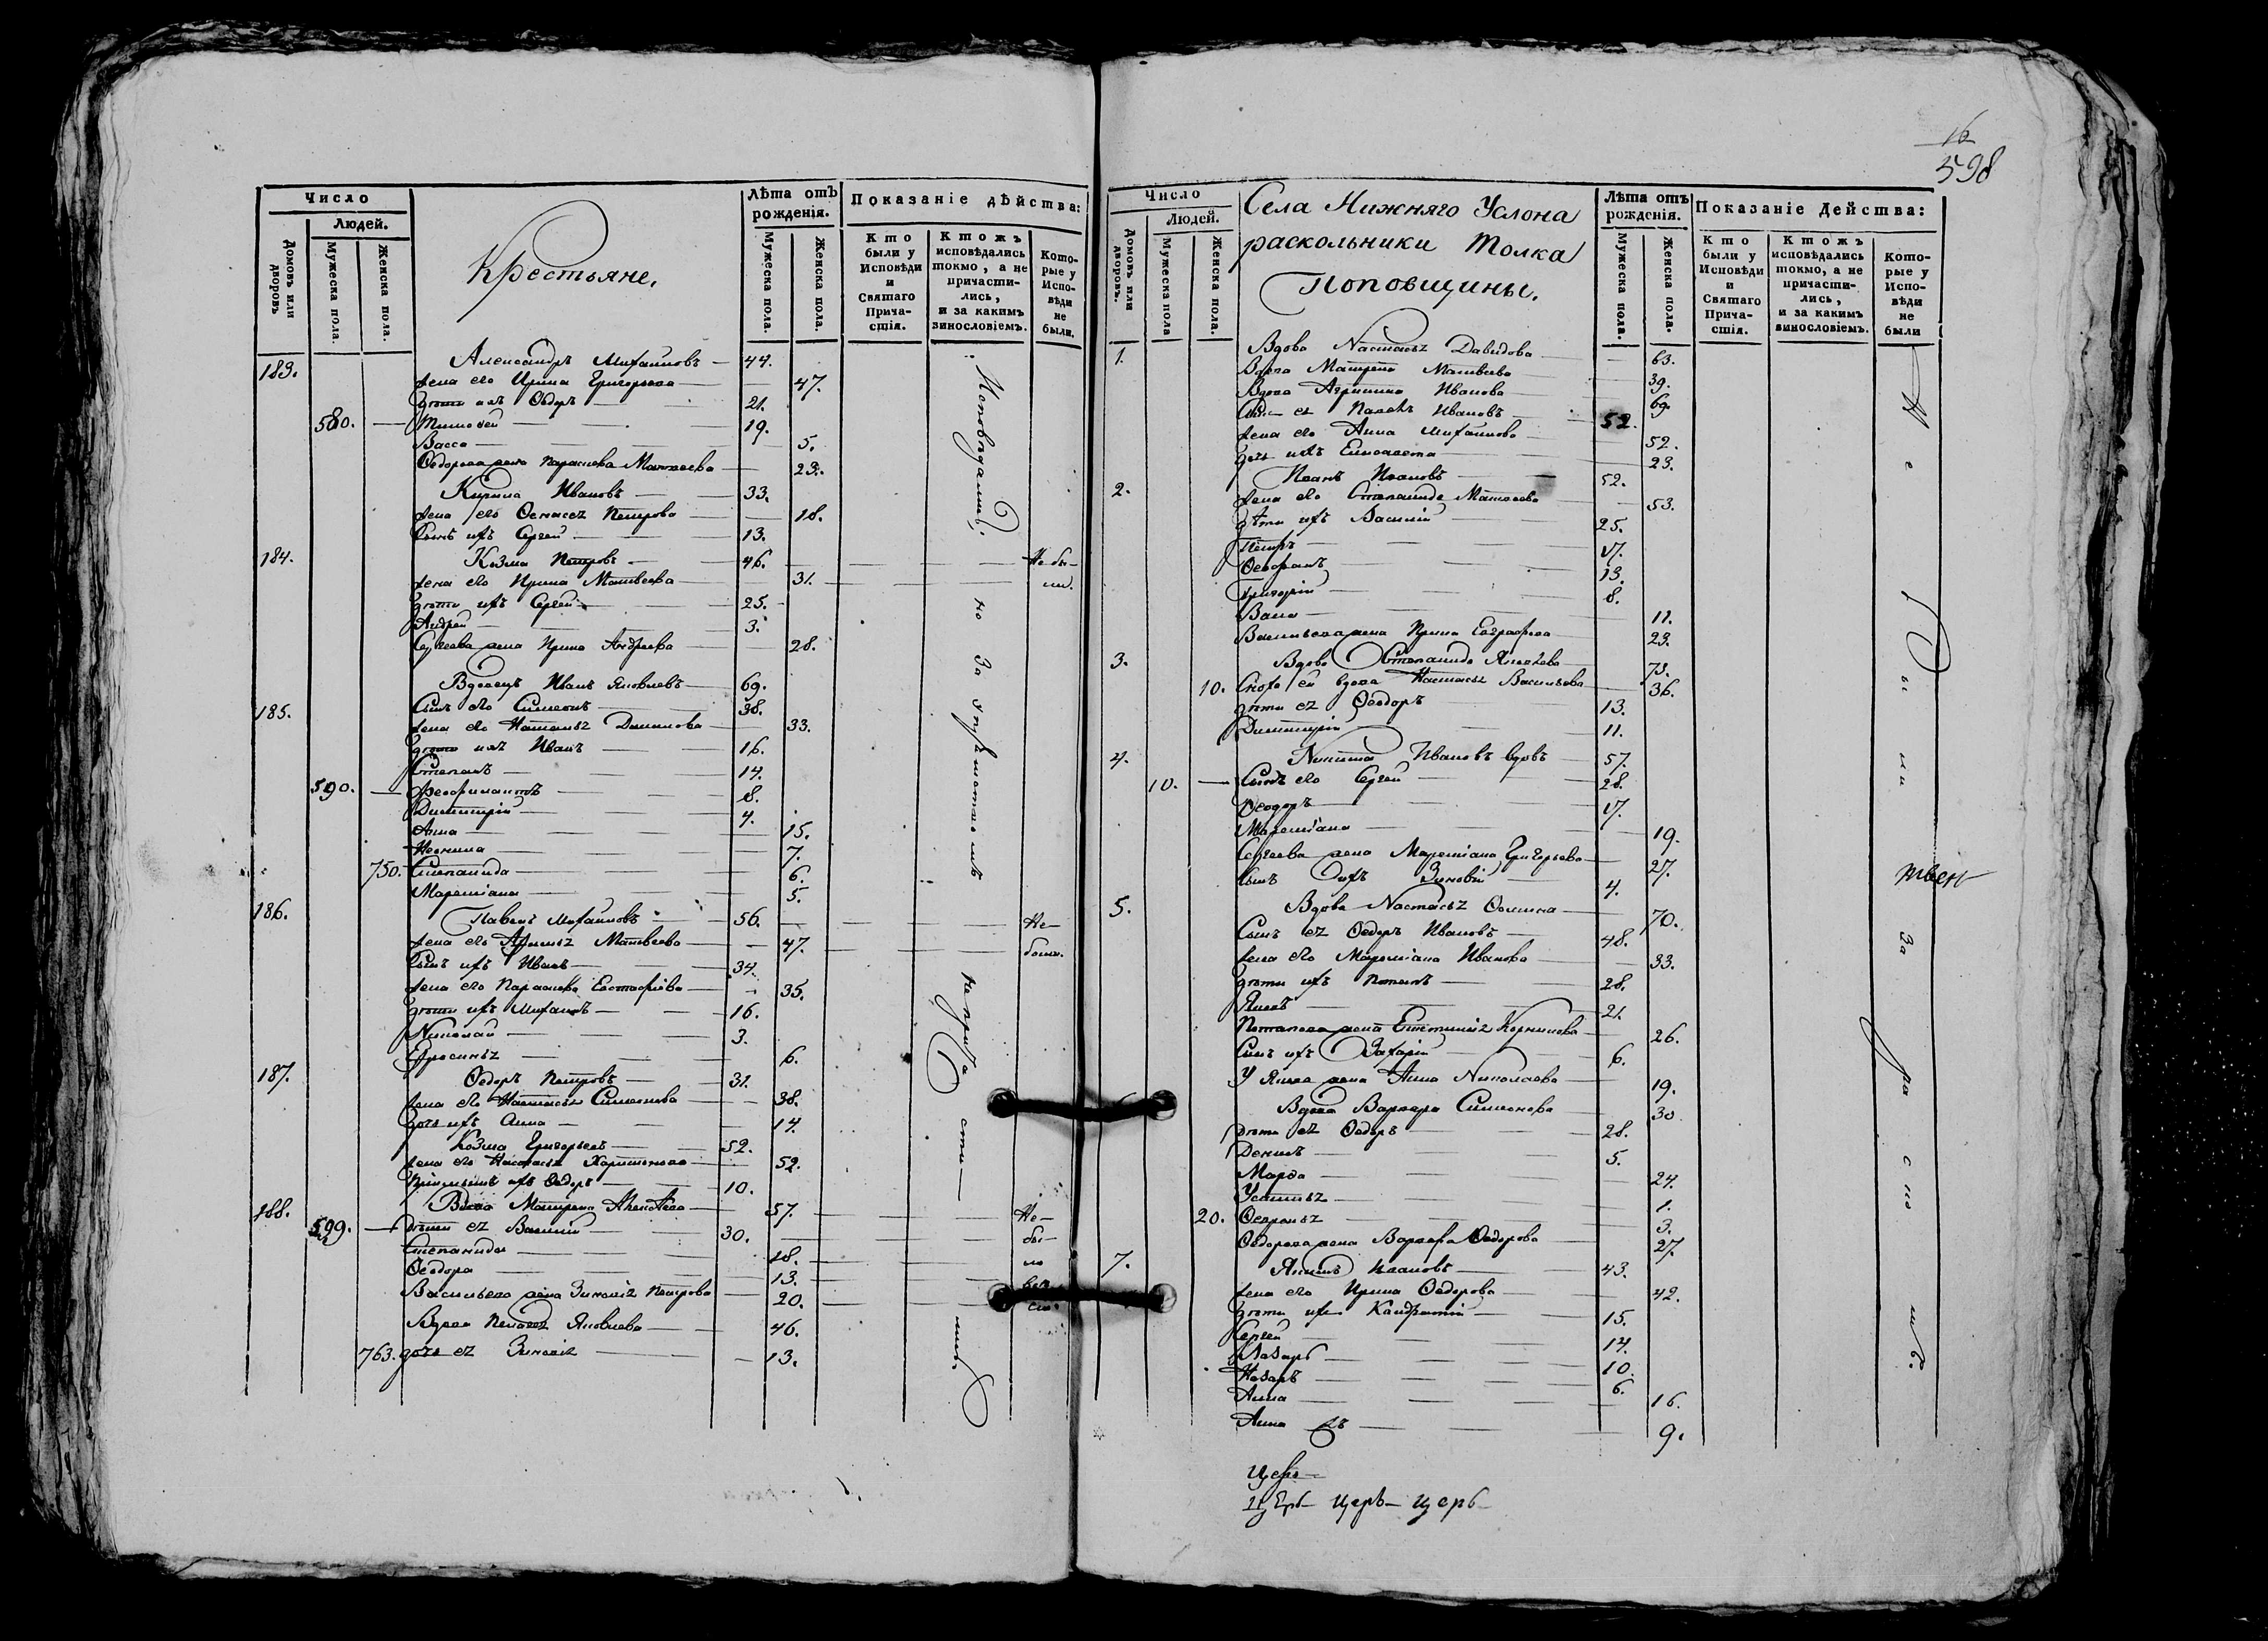 Число
Людей.
Домовъ или дворовъ
Мужеска пола.
Женска пола.
Крестьяне.
Лѣта отъ рожденія.
Мужеска пола.
Женска пола.
Показаніе дѣйства:
Кто были у Исповѣди и Святаго Причастія.
Ктожъ исповѣдались токмо, а не причастились, и за какимъ винословіемъ.
Которые у Исповѣди не были.
183. Александръ Михайловъ 44.
жена его Ирина Григорьева 47.
дѣти ихъ Ѳедоръ 21.
580. Тимофей 19.
Васса 5.
Ѳедорова жена Параскева Матвеева 23.
Кирила Ивановъ 33.
жена его Петрова 18.
Сынъ ихъ Сергей 13.
184. Козма Петровъ 46. Не бы-
жена его Ирина Матвеева 31. ли.
дѣти ихъ Сергей 25.
Андрей 3.
Сергеева жена Ирина Андреева 28.
Вдовецъ Иванъ Яковлевъ 69.
185. Сынъ его Симеонъ 38.
жена его Наталья Данилова 33.
дѣти ихъ Иванъ 16.
Степанъ 14.
590. Феофилактъ 8.
Димитрій 4.
Анна 15.
Неонила 7.
750. Степанида 6.
Маремiана 5.
186. Павелъ Михайловъ 56. Не-
жена его Матвеева 47. были.
Сынъ ихъ Иванъ 34.
жена его Параскева Евстафіева 35.
дѣти ихъ Михаилъ 16.
Николай 3.
Ефросинья 6.
187. Ѳедоръ Петровъ 31.
жена его Настасья Симеонова 38.
дочь ихъ Анна 14.
Козма Григорьевъ 52.
жена его Настасья Харитонова 52.
ихъ Ѳедоръ 10.
188. Вдова Матрена 57. Не-
599. дѣти ея Василий 30. бы-
Степанида 18. ло
Ѳеодора 13.
Васильева жена Зиновія Петрова 20.
Вдова Пелагея Яковлева 46.
763. дочь ея Зиновія 13.
Исповѣдались но за не прича сти лись.
16
598
Число
Людей.
Домовъ или дворовъ.
Мужеска пола
Женска пола.
Села Нижняго Услона
раскольники Толка
Поповщины.
Лѣта отъ рожденія.
Мужеска пола.
Женска пола.
Показаніе Действа:
Кто были у Исповѣди и Святаго Причастія.
Ктожъ исповѣдались токмо, а не причастились, и за какимъ винословіемъ.
Которые у Исповѣди не были
1. Вдова Настасья Давидова 63.
Вдова Матрена Матвеева 39.
Вдова Агрипина Иванова 69.
Сынъ ея Павелъ Ивановъ 52.
жена его Анна Михайлова 52.
дочь ихъ Елисавета 23.
2. Иванъ Ивановъ 52.
жена его Степанида Матвеева 53.
дѣти ихъ Василий 25.
Петръ 17.
Ѳеофанъ 13.
Григорій 8.
Васса 11.
Васильева жена Ирина Евграфова 23.
3. Вдова Степанида Яковлева 73.
10. Сноха ей вдова Настасья Васильева 36.
дѣти ея Ѳеодоръ 13.
Димитрій 11.
4. Никита Ивановъ 57.
10. Сынъ его Сергей 28.
Ѳеодоръ 17.
Маремiана 19.
Сергеева жена Маремiана Григорьева 27.
Сынъ ихъ Зиновій 4.
5. Вдова Настасья Ѳомина 70.
Сынъ ея Ѳедоръ Ивановъ 48.
жена его Маремiана Иванова 33.
дѣти ихъ Потапъ 28.
Яковъ 21.
Потапова жена Корнилова 26.
Сынъ ихъ Захарій 6.
У Якова жена Анна Николаева 19.
Вдова Варвара Симеонова 30
дѣти ея Ѳедоръ 28.
Денисъ 5.
Марѳа 24.
Устинья 1.
20. Ѳеѳанья 3.
Ѳедорова жена Варвара Ѳедорова 27.
7. Якимъ Ивановъ 43.
жена его Ирина Ѳедорова 42.
дѣти ихъ Кандратій 15.
Сергей 14.
Лазарь 10.
Назаръ 6.
Анна 16.
Анна 9.
Не были за ра с ко
Церь
Церь церь церь